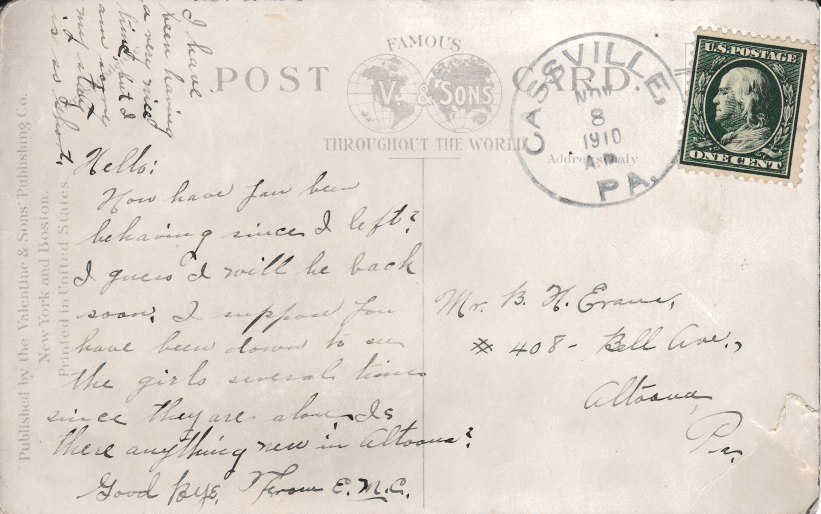 I have
been having
a very nice
time, but I
am sorry
my stay
is so short.
POST CARD.
FAMOUS
V. & SONS
THROUGHOUT THE WORLD
Address Only
CASSVILLE,
NOV
8
1910
A.M.
PA.
U.S. POSTAGE
ONE CENT
Published by the Valentine & Sons Publishing Co.
New York and Boston.
Printed in United States.
Hello:
How have you been
behaving since I left?
I guess I will be back
soon. I suppose you
have been down to see
the girls several times
since they are alone. Is
there anything new in Altoona?
Good Bye. From E.M.C.
Mr. B. H. Evans,
# 408 - Bell Ave.,
Altoona,
Pa.